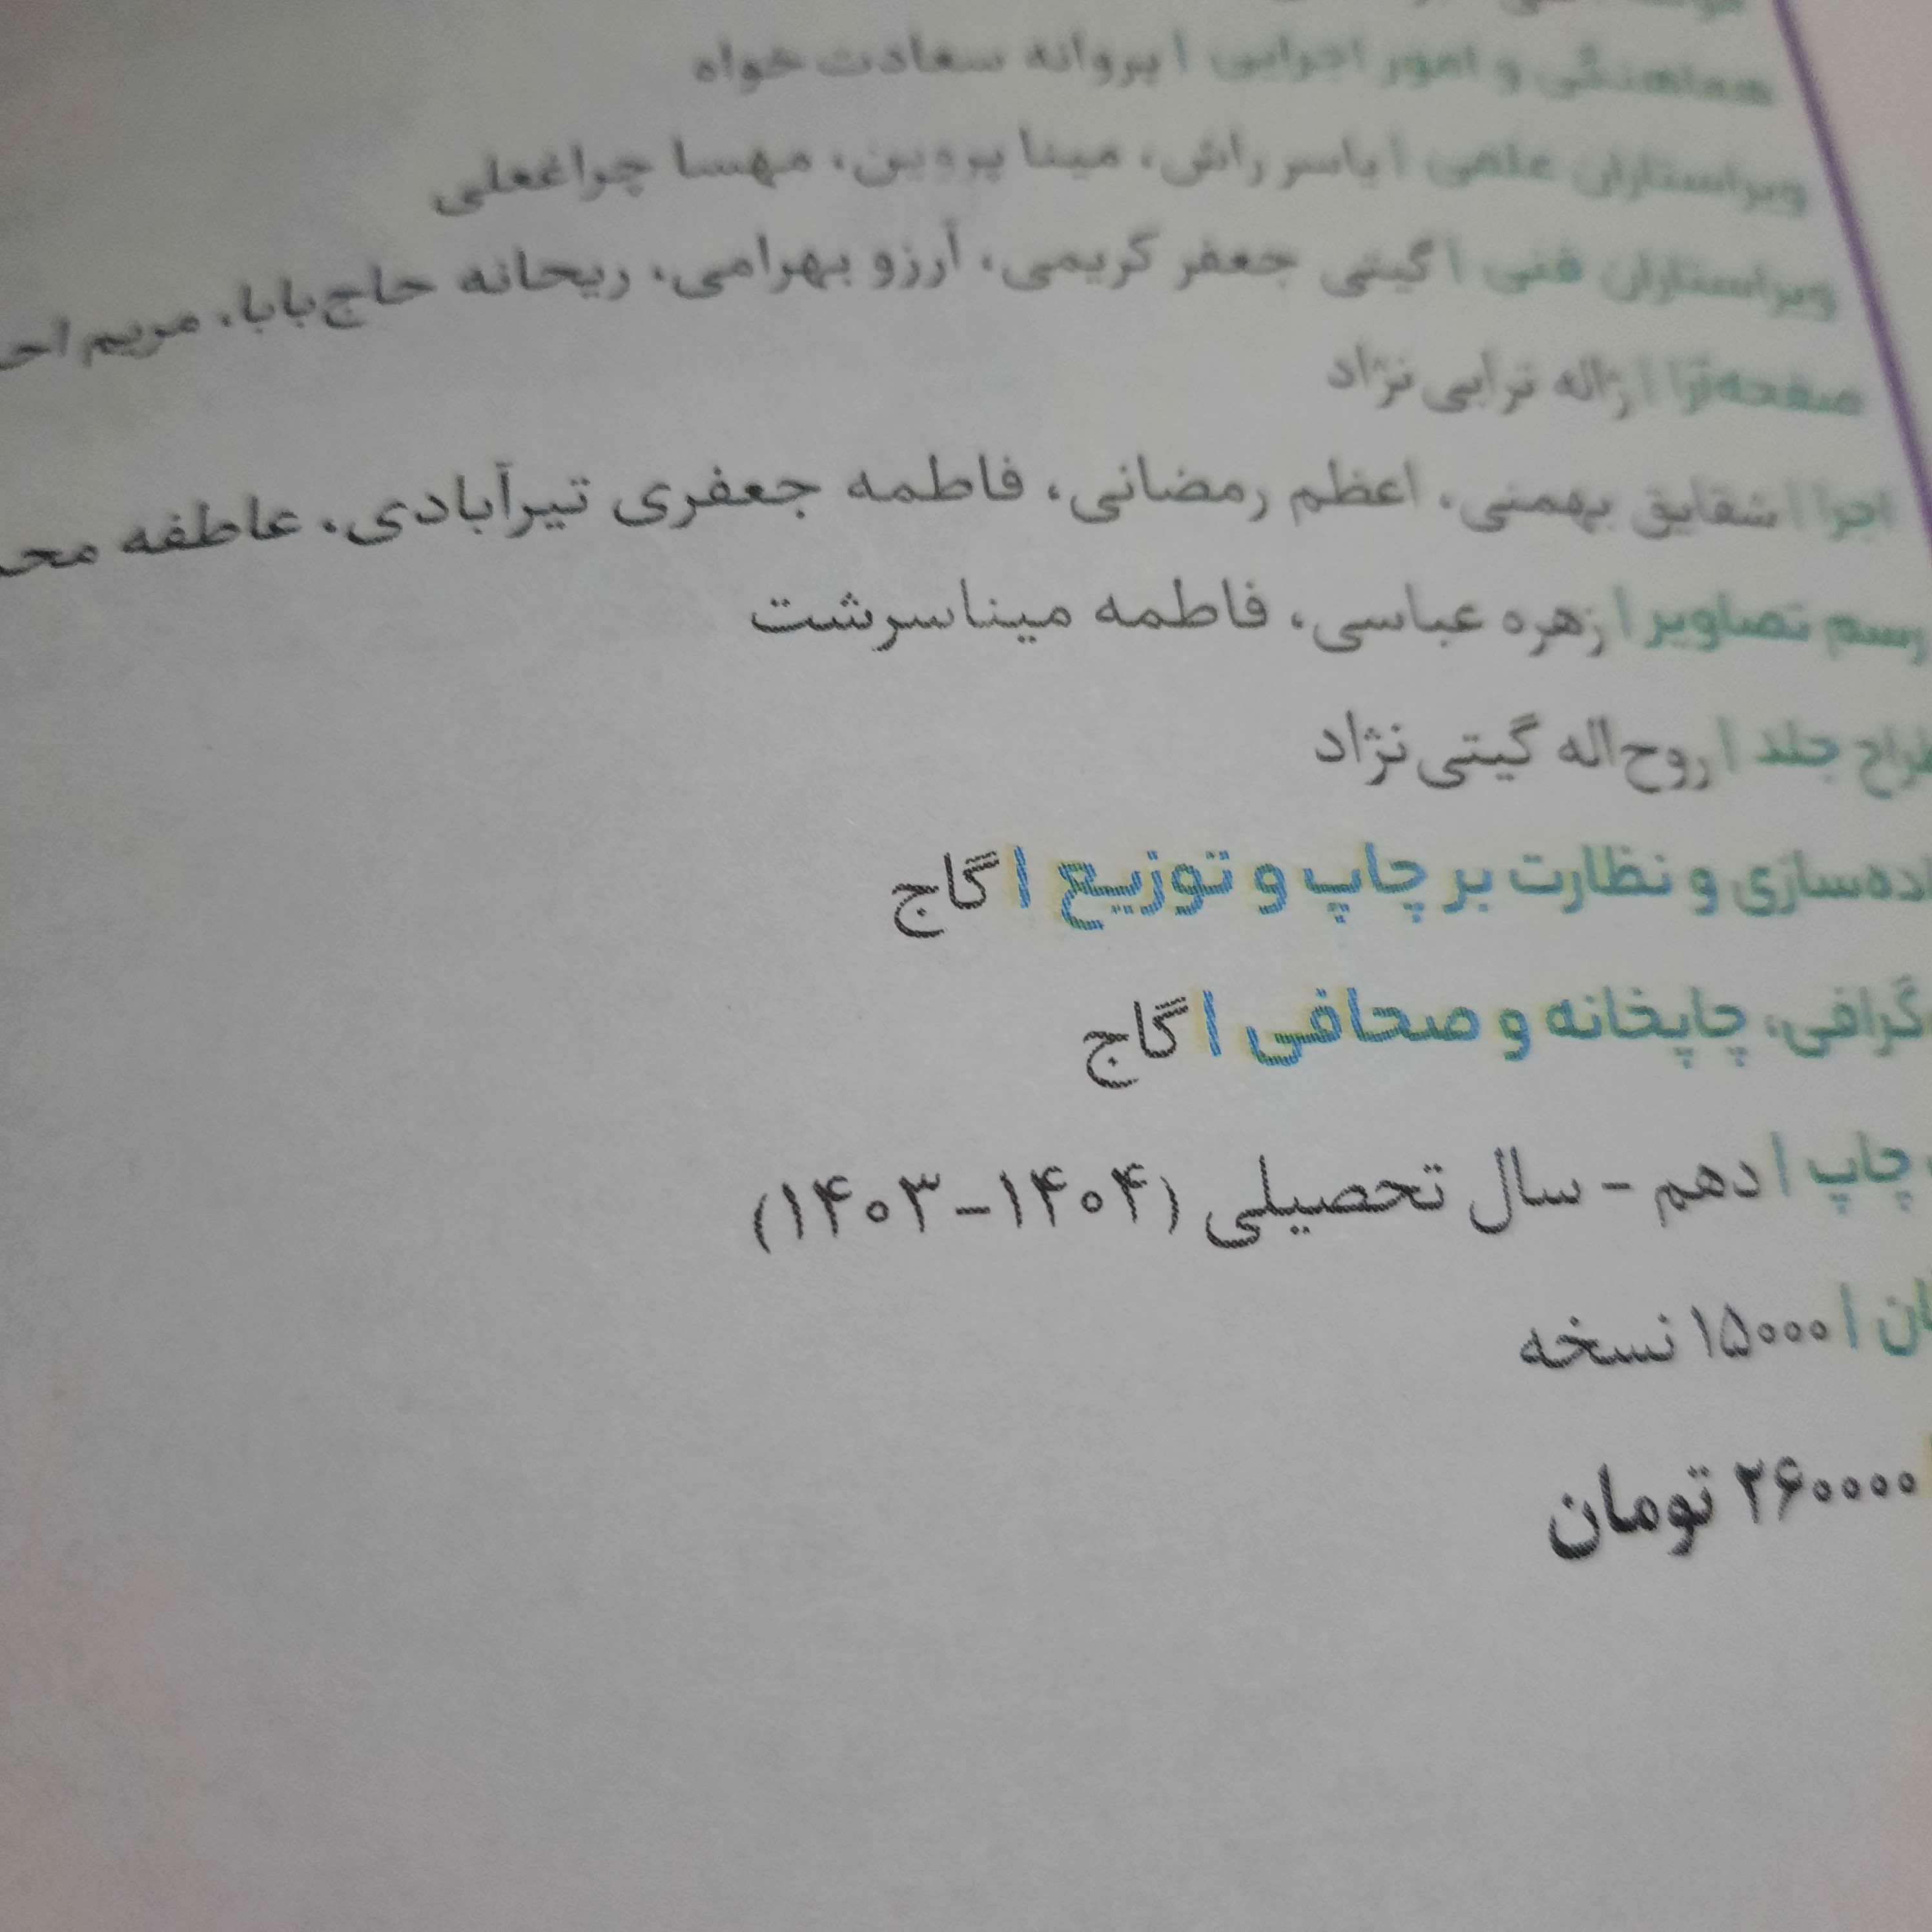 هماهنگی و امور اجرایی | پروانه سعادت‌خواه
ویراستاران علمی | یاسر راش، مینا پروین، مهسا چراغعلی
ویراستاران فنی | گیتی جعفر کریمی، آرزو بهرامی، ریحانه حاج‌بابا، مریم
صفحه‌آرا | ژاله ترابی‌نژاد
اجرا | شقایق بهمنی، اعظم رمضانی، فاطمه جعفری تیرآبادی، عاطفه
رسم تصاویر | زهره عباسی، فاطمه میناسرشت
جلد | روح‌اله گیتی‌نژاد
و نظارت بر چاپ و توزیع | گاج
چاپخانه و صحافی | گاج
چاپ | دهم - سال تحصیلی (۱۴۰۴-۱۴۰۳)
| ۱۵۰۰۰ نسخه
۲۶۰۰۰۰ تومان